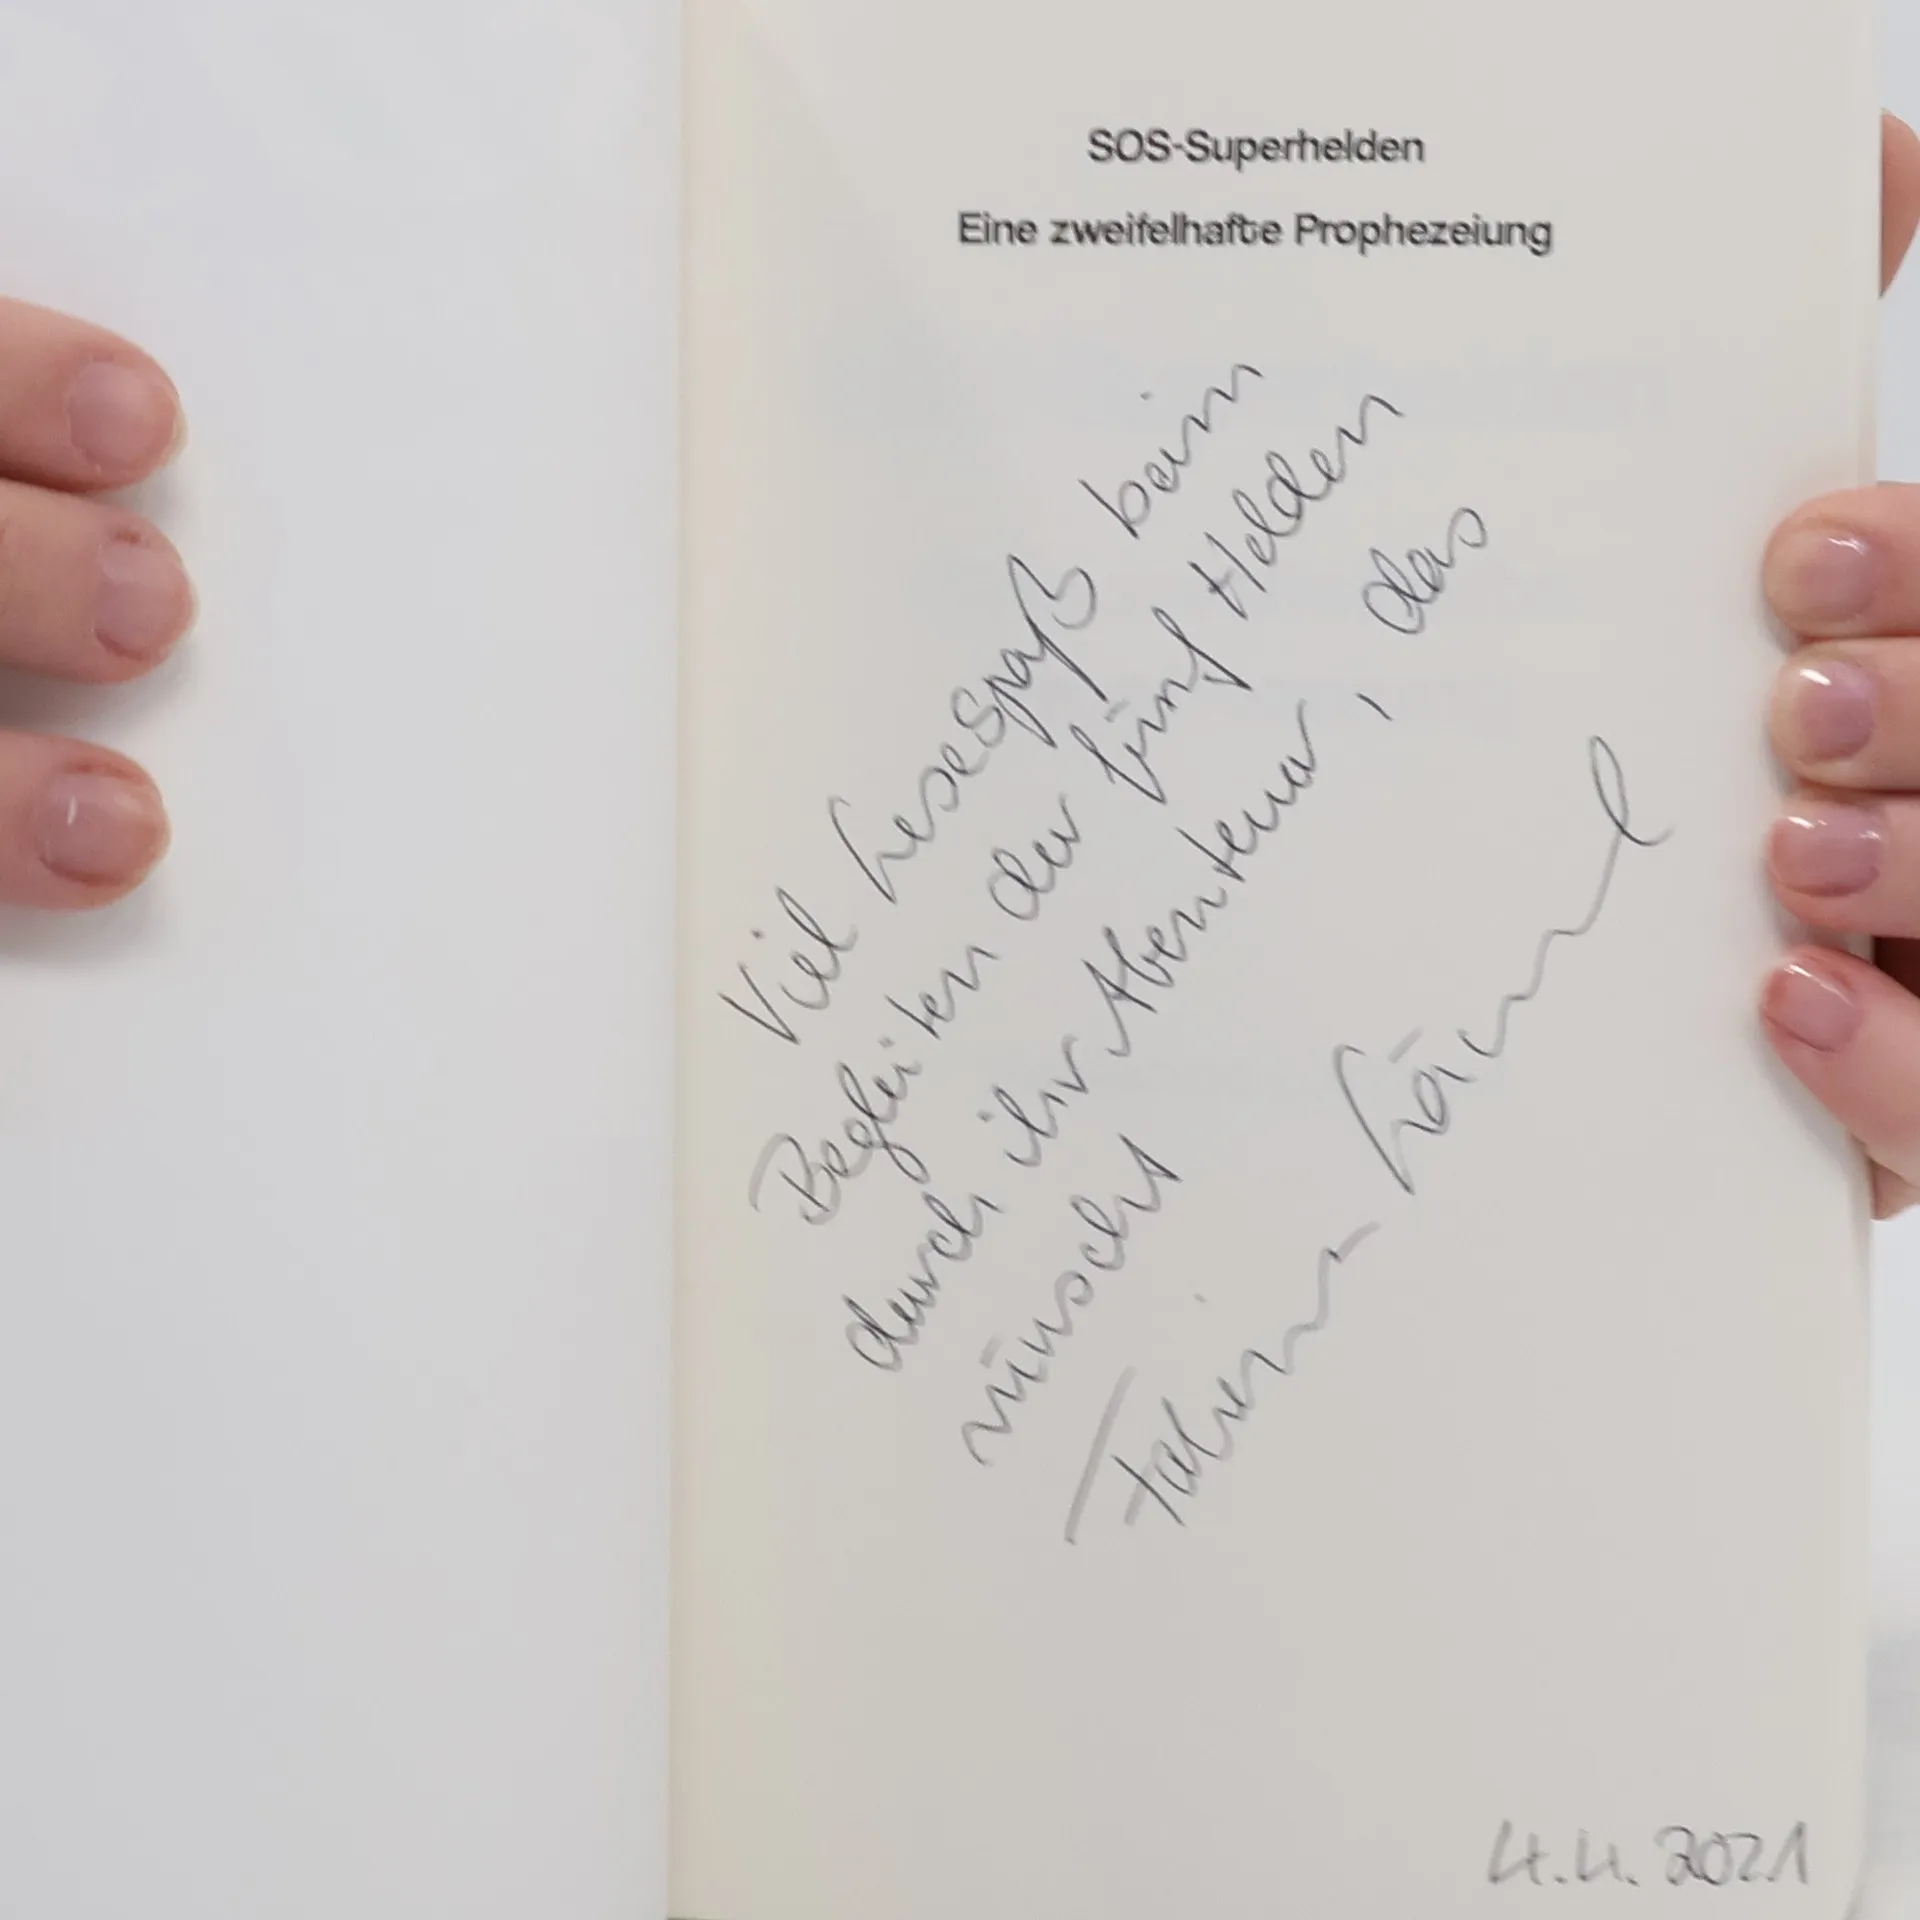 SOS-Superhelden
Eine zweifelhafte Prophezeiung
Viel Lesespaß beim
Begleiten der fünf Helden
durch ihr Abenteuer, das
wünscht
4.4.2021